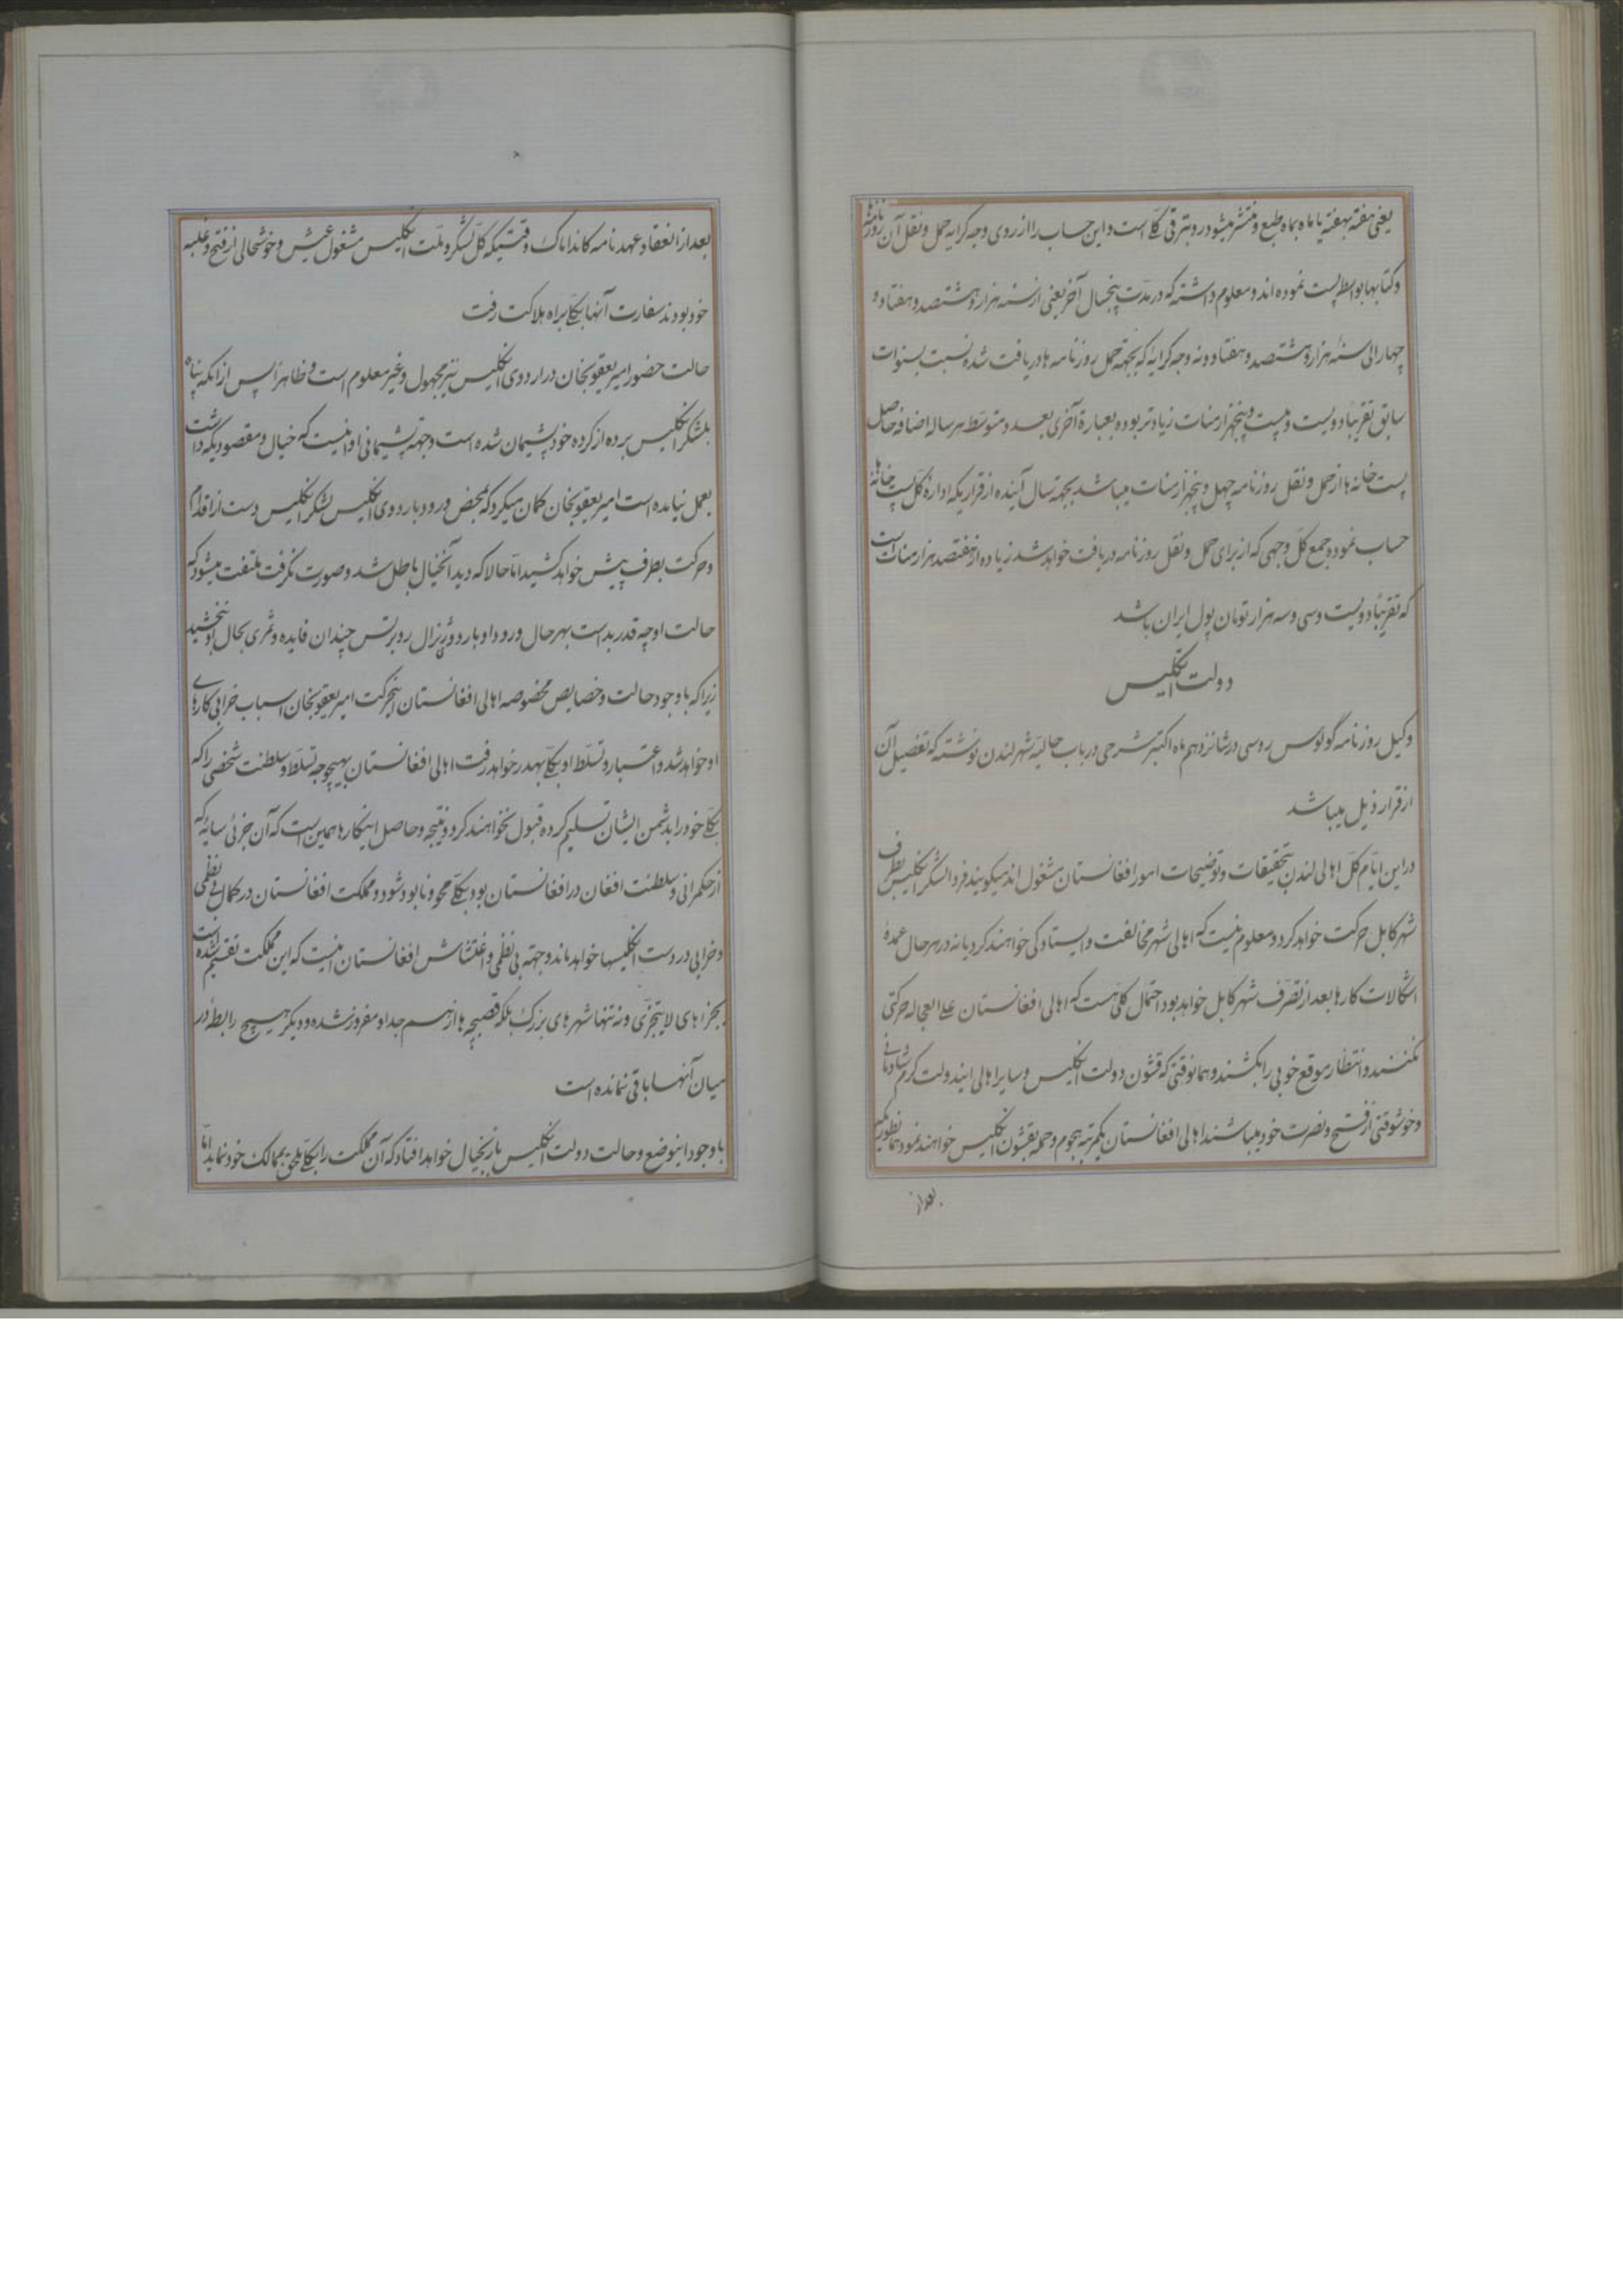 یعنی هفته بهفته یا ماه بماه طبع و منتشر میشود رو بترقی کلی است و این حساب را از روی وجه کرایه حمل و نقل آن روزنامه‌ها
و کتابها بواسطه پست نموده اند و معلوم داشته که در مدت پنجسال آخر یعنی از سنه هزار و هشتصد و هفتاد و
چهار الی سنهٔ هزار و هشتصد و هفتاد و نه وجه کرایه که بجهته حمل روزنامه ها دریافت شده نسبت بسنوات
سابق تقریباً دویست و بیست و پنجهزار منات زیادتر بوده بعبارة آخری بعد متوسط هر ساله اضافه حاصل
پست خانه ها از حمل و نقل روزنامه چهل و پنجهزار منات میباشد بجهته سال آینده از قراریکه ادارهٔ کل پست خانه ها
حساب نموده جمع کل وجهی که از برای حمل و نقل روزنامه دریافت خواهد شد زیاده از هفتصد هزار منات است
که تقریباً دویست و سی و سه هزار تومان پول ایران باشد
دولت انکلیس
وکیل روزنامه گولوس روسی در شانزدهم ماه اکتبر شرحی در باب حالیهٔ شهر لندن نوشته که تفصیل آن
از قرار ذیل میباشد
در این ایام کل اهالی لندن بتحقیقات و توضیحات امور افغانستان مشغول اند میکویند فردا لشکر انکلیس بطرف
شهر کابل حرکت خواهد کرد و معلوم نیست که اهالی شهر مخالفت و ایستادکی خواهند کرد یا نه در هر حال عمدهٔ
اشکالات کارها بعد از تصرف شهر کابل خواهد بود احتمال کلی هست که اهالی افغانستان علی العجاله حرکتی
نکنند و انتظار موقع خوبی را بکشند و همانوقتی که قشون دولت انکلیس و سایر اهالی ایندولت کرم شادمانی
و خوشوقتی از فتح و نصرت خود میباشند اهالی افغانستان یکمرتبه هجوم و حمله بقشون انکلیس خواهند نمود همانطوریکه
بعد از
بعد از انعقاد عهدنامه کانداماک وقتیکه کل لشکر و ملت انکلیس مشغول عیش و خوشحالی از فتح و غلبه
خود بودند سفارت آنها بکلی براه هلاکت رفت
حالت حضور امیر یعقوبخان در اردوی انکلیس نیز مجهول و غیر معلوم است و ظاهراً پس از آنکه پناه
بلشکر انکلیس برده از کرده خود پشیمان شده است و جهته پشیمانی او اینست که خیال و مقصودیکه داشت
بعمل نیامده است امیر یعقوبخان کمان میکرد که بمحض ورود باردوی انکلیس لشکر انکلیس دست از اقدام
و حرکت بطرف پیش خواهد کشید اما حالا که دید آنخیال باطل شد و صورت نکرفت ملتفت میشود که
حالت او چه قدر بد است بهر حال ورود او باردوی ژنرال روبرتس چندان فایده و ثمری بحال او نبخشید
زیرا که با وجود حالت و خصایص مخصوصه اهالی افغانستان اینحرکت امیر یعقوبخان اسباب خرابی کارهای
او خواهد شد و اعتبار و تسلط او بکلی بهدر خواهد رفت اهالی افغانستان بهیچوجه تسلط و سلطنت شخصی را که
بکلی خود را بدشمن ایشان تسلیم کرده قبول نخواهند کرد و نتیجه و حاصل اینکارها همین است که آن جزئی سایهٔ که
از حکمرانی و سلطنت افغان در افغانستان بود بکلی محو و نابود شود و مملکت افغانستان در کمال بی نظمی
و خرابی در دست انکلیسها خواهد ماند و جهته بی نظمی و اغتشاش افغانستان اینست که این مملکت تقسیم شده است
بجزاهای لایتجزی و نه تنها شهرهای بزرک بلکه قصبچه ها از هم جدا و مفروز شده و دیکر هیچ رابطهٔ در
میان آنها باقی نمانده است
با وجود اینوضع و حالت دولت انکلیس باز بخیال خواهد افتاد که آن مملکت را بکلی ملحق بممالک خود نماید اما